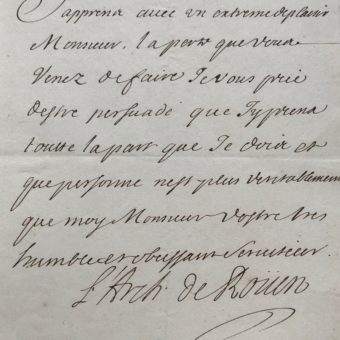 J'apprens avec un extreme deplaisir
Monsieur, la perte que vous
Venez de faire Je vous prie
destre persuadé que J'yprens
toutte la part que Je dois et
que personne nest plus veritablement
que moy Monsieur vostre tres
humble et obeissant serviteur
L'Arch. de Roüen